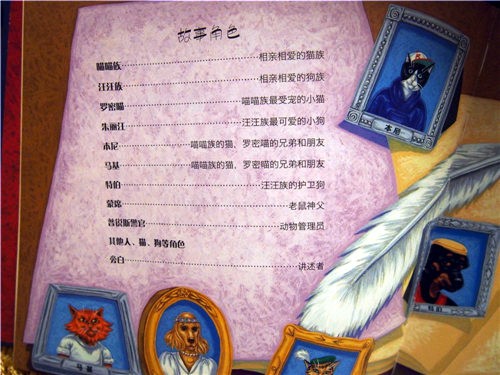 故事角色
喵喵族……相亲相爱的猫族
汪汪族……相亲相爱的狗族
罗密喵……喵喵族最受宠的小猫
朱丽汪……汪汪族最可爱的小狗
本尼……喵喵族的猫、罗密喵的兄弟和朋友
马基……喵喵族的猫、罗密喵的兄弟和朋友
特伯……汪汪族的护卫狗
蒙席……老鼠神父
普锐斯警官……动物管理员
其他人、猫、狗等角色
旁白……讲述者
本尼
特伯
马基